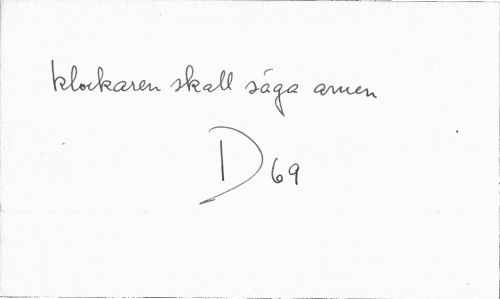 klockaren skall säga amen
D 69